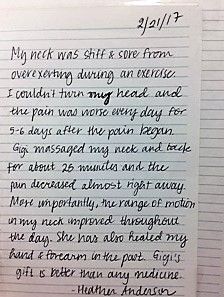 2/21/17
My neck was stiff & sore from
overexerting during an exercise.
I couldn't turn my head and
the pain was worse every day for
5-6 days after the pain began.
Gigi massaged my neck and back
for about 25 minutes and the
pain decreased almost right away.
More importantly, the range of motion
in my neck improved throughout
the day. She has also healed my
hand & forearm in the past. Gigi's
gift is better than any medicine.
- Heather Anderson